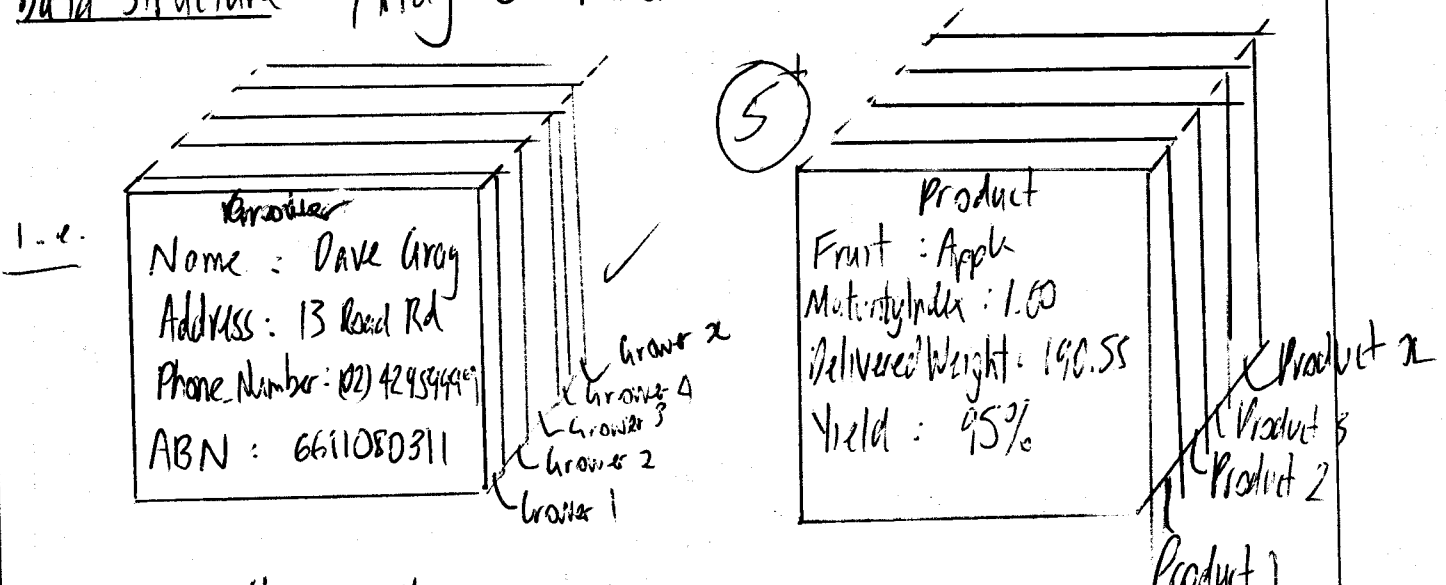 Data Structure
5+
i.e.
Grower
Name : Dave Gray
Address : 13 Road Rd
Phone_Number : (02)
ABN : 6611080311
Grower x
Grower 4
Grower 3
Grower 2
Grower 1
Product
Fruit : Apple
MaturityIndex : 1.00
DeliveredWeight : 190.55
Yield : 95%
Product x
Product 3
Product 2
Product 1